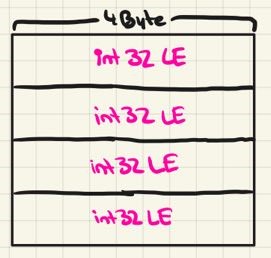 4 Byte
int 32 LE
int 32 LE
int 32 LE
int 32 LE